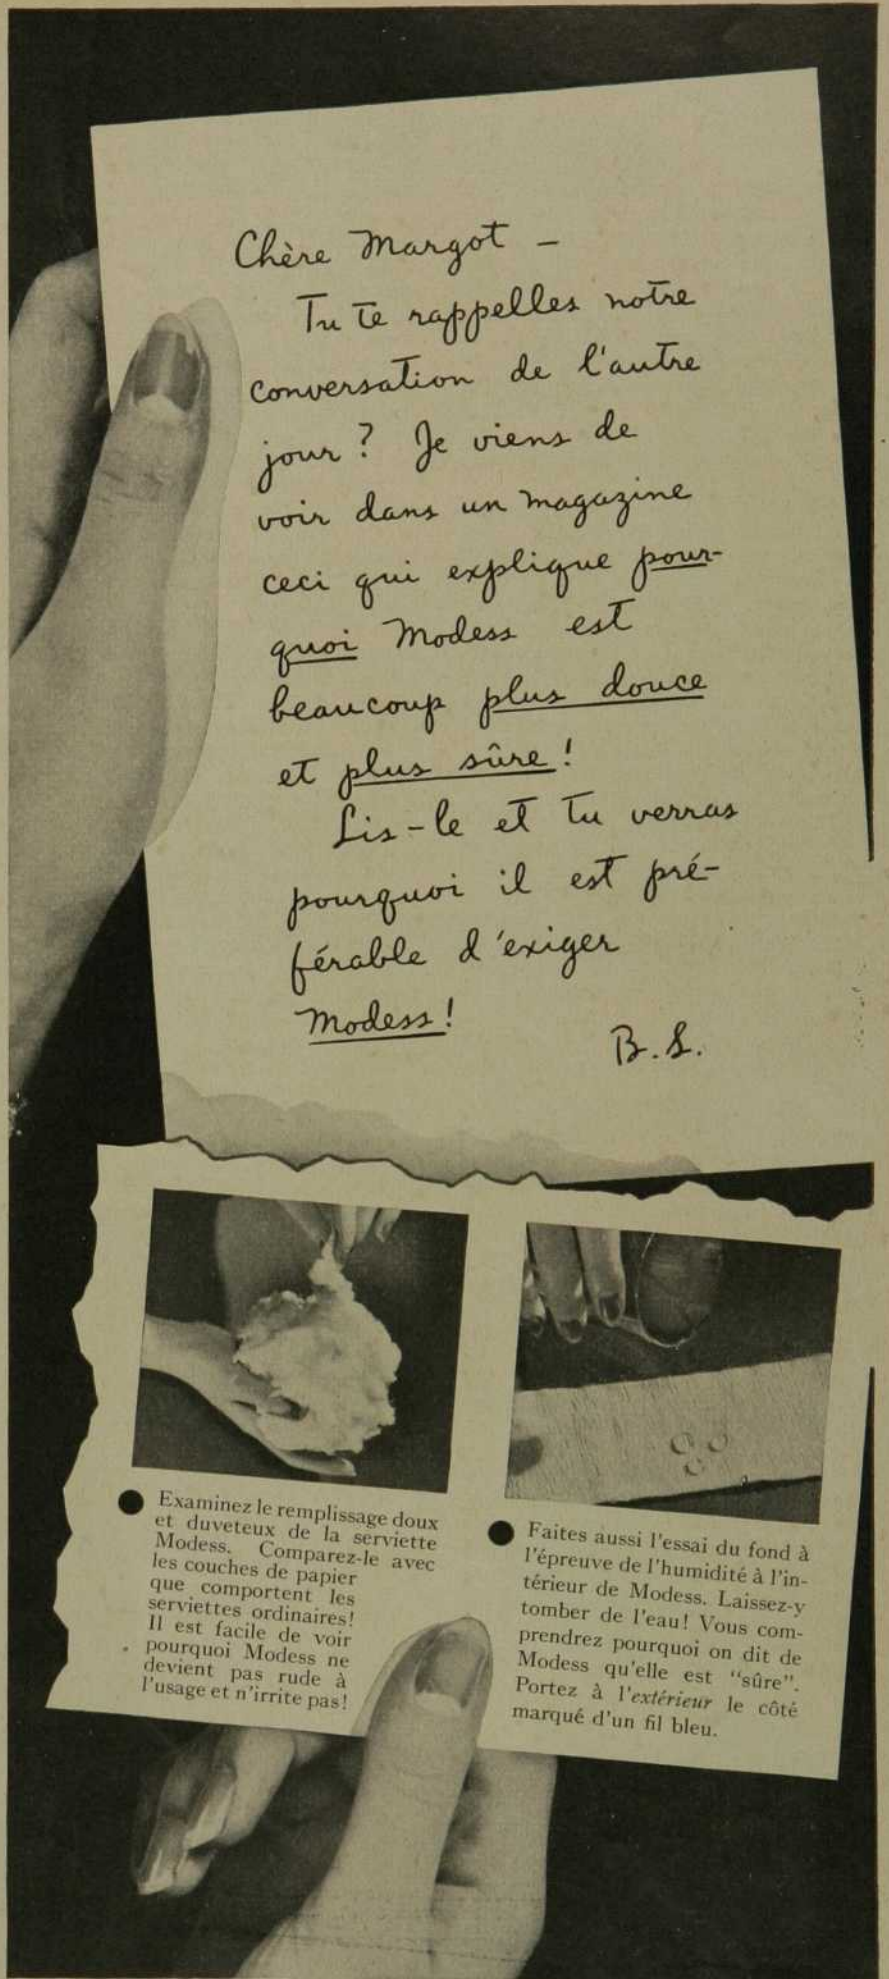 Chère Margot –
Tu te rappelles notre
conversation de l'autre
jour ? Je viens de
voir dans un magazine
ceci qui explique pour-
quoi Modess est
beaucoup plus douce
et plus sûre !
Lis-le et tu verras
pourquoi il est pré-
férable d'exiger
Modess !
B.S.
Examinez le remplissage doux
et duveteux de la serviette
Modess. Comparez-le avec
les couches de papier
que comportent les
serviettes ordinaires!
Il est facile de voir
pourquoi Modess ne
devient pas rude à
l'usage et n'irrite pas!
Faites aussi l'essai du fond à
l'épreuve de l'humidité à l'in-
térieur de Modess. Laissez-y
tomber de l'eau! Vous com-
prendrez pourquoi on dit de
Modess qu'elle est "sûre".
Portez à l'extérieur le côté
marqué d'un fil bleu.